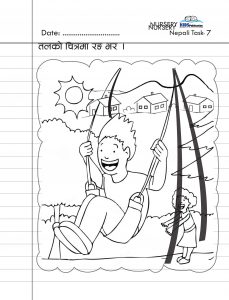 NURSERY
NURSERY
Date: ............................
Nepali Task- 7
तलको चित्रमा रङ भर ।